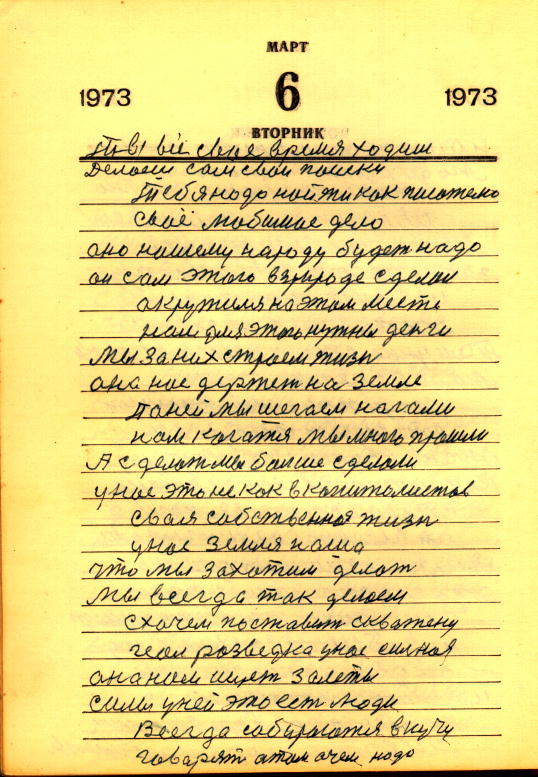 МАРТ
1973 6 1973
ВТОРНИК
Ты всё свое время ходиш
Делоеш сам свои поиски
Тебя надо найти как писателю
своё любимое дело
оно нашему народу будет надо
он сам этого в природе сделал
окружился на этом месте
нам для этого нужны денги
Мы за них строем жизн
она нас держет на земле
По ней мы шегаем ногами
нам кагатя мы много прошли
А сделат мы болше сделали
у нас это не как в капиталистов
своя собственноя жизн
у нас земля наша
что мы захотим делат
мы всегда так делоем
схочем поставит скважену
геол розведка у нас силноя
она нам ищет
силы у ней это ест люди
Всегда собираются в кучу
говарят о том о чем надо